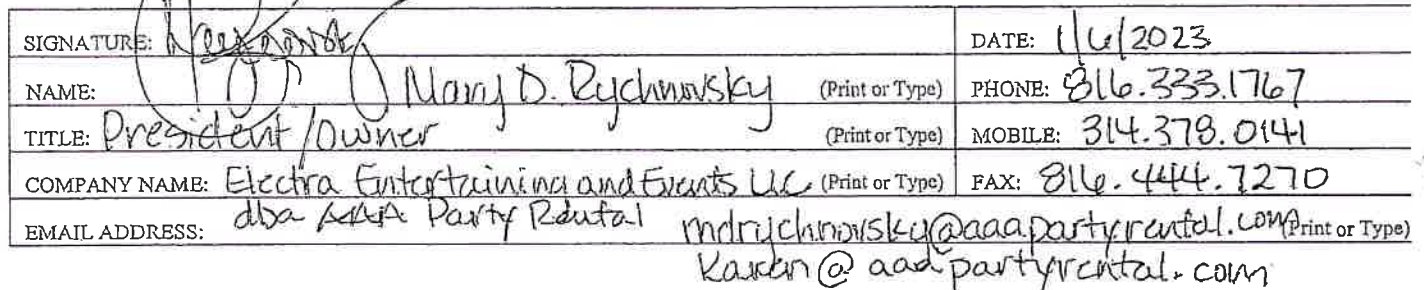 SIGNATURE: DATE: 1/6/2023
NAME: Mary D. Rychnovsky (Print or Type) PHONE: 816.333.1767
TITLE: President/Owner (Print or Type) MOBILE: 314.378.0141
COMPANY NAME: Electra Entertaining and Events LLC (Print or Type) FAX: 816.444.7270
dba AAA Party Rental
EMAIL ADDRESS: mdrychnovsky@aaapartyrental.com (Print or Type)
Karen@aaapartyrental.com